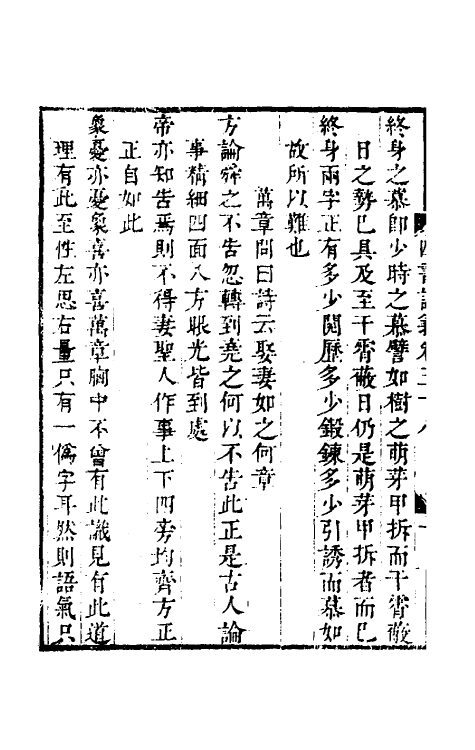 終身之慕卽少時之慕譬如樹之萌芽甲拆而干霄蔽
日之勢已具及至干霄蔽日仍是萌芽甲拆者而已
終身兩字正有多少閱歷多少鍛鍊多少引誘而慕如
故所以難也
萬章問曰詩云娶妻如之何章
方論舜之不告忽轉到堯之何以不告此正是古人論
事精細四面八方眼光皆到處
帝亦知告焉則不得妻聖人作事上下四旁均齊方正
正自如此
象憂亦憂象喜亦喜萬章胸中不曾有此識見有此道
理有此至性左思右量只有一僞字耳然則語氣只